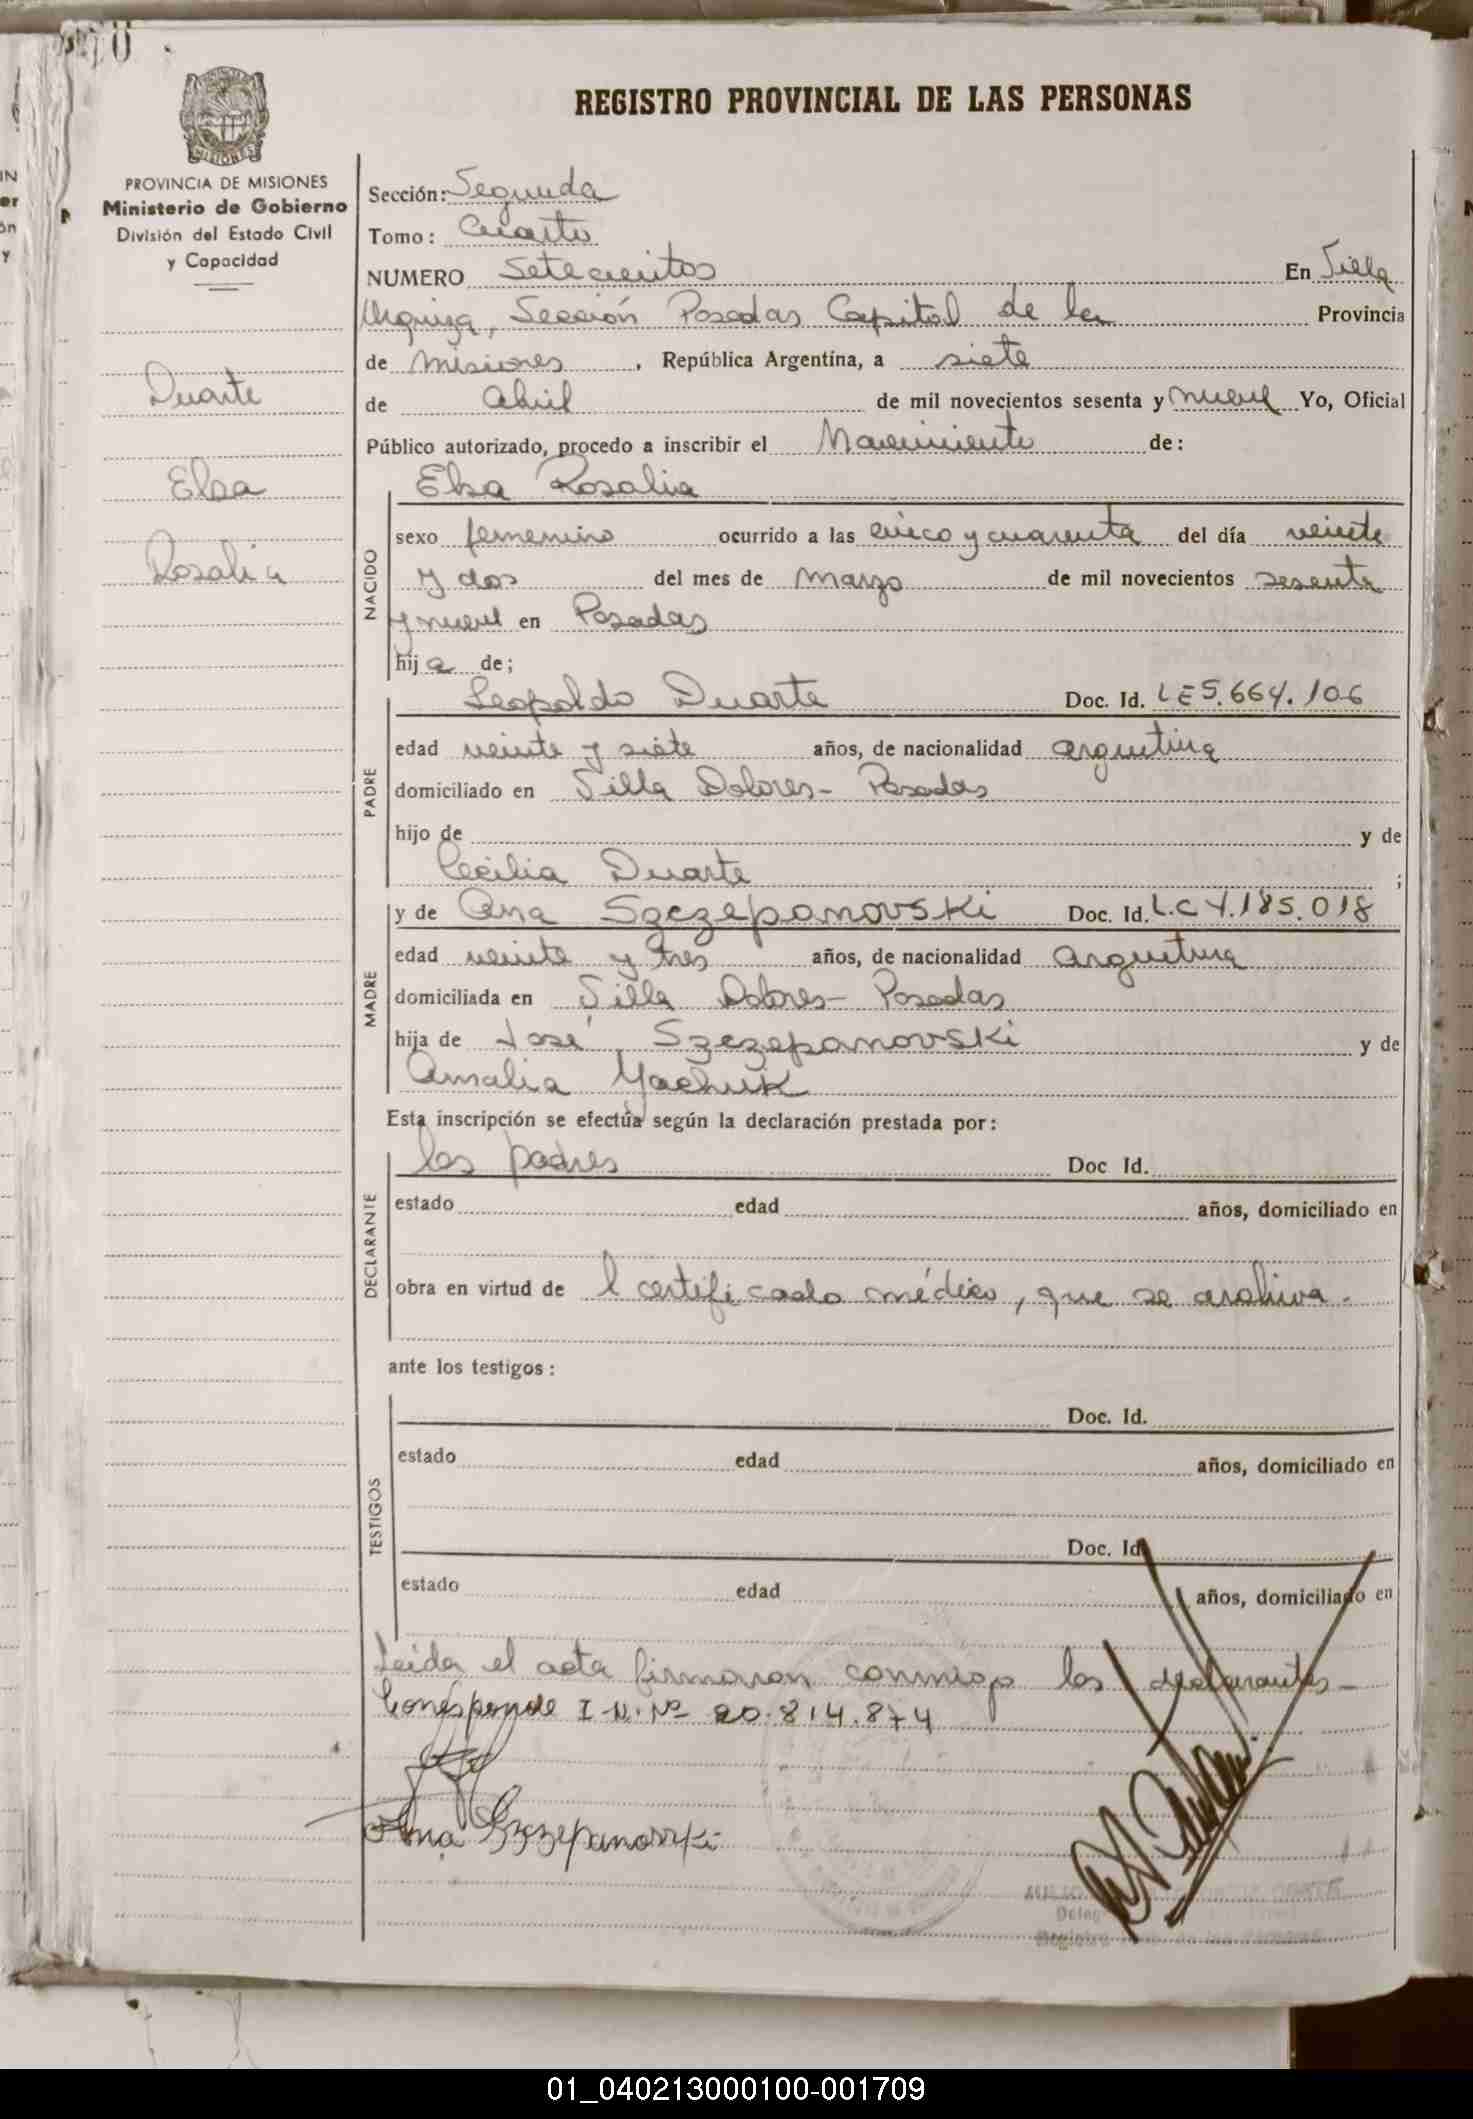 REGISTRO PROVINCIAL DE LAS PERSONAS
MISIONES
PROVINCIA DE MISIONES
Ministerio de Gobierno
División del Estado Civil
y Capacidad
Duarte
Elsa
Rosalia
Sección: Segunda
Tomo: Cuarto
NUMERO Setecientos En Villa
Urquiza, Sección Posadas Capital de la Provincia
de Misiones, República Argentina, a siete
de abril de mil novecientos sesenta y nueve Yo, Oficial
Público autorizado, procedo a inscribir el Nacimiento de:
Elsa Rosalia
NACIDO
sexo femenino ocurrido a las cinco y cuarenta del día veinte
y dos del mes de marzo de mil novecientos sesenta
y nueve en Posadas
hija de;
Leopoldo Duarte Doc. Id. LE 5.664.106
PADRE
edad veinte y siete años, de nacionalidad argentina
domiciliado en Villa Dolores - Posadas
hijo de y de
Cecilia Duarte ;
y de Ana Szczepanovski Doc. Id. L.C 4.185.018
MADRE
edad veinte y tres años, de nacionalidad argentina
domiciliada en Villa Dolores - Posadas
hija de José Szczepanovski y de
Amalia Yachuk
Esta inscripción se efectúa según la declaración prestada por:
los padres Doc Id.
DECLARANTE
estado edad años, domiciliado en
obra en virtud de l certificado médico, que se archiva.
ante los testigos:
Doc. Id.
TESTIGOS
estado edad años, domiciliado en
Doc. Id
estado edad años, domiciliado en
Leída el acta firmaron conmigo los declarantes -
Corresponde I-N.Nº 20.814.874
Ana Szczepanovski
01_040213000100-001709